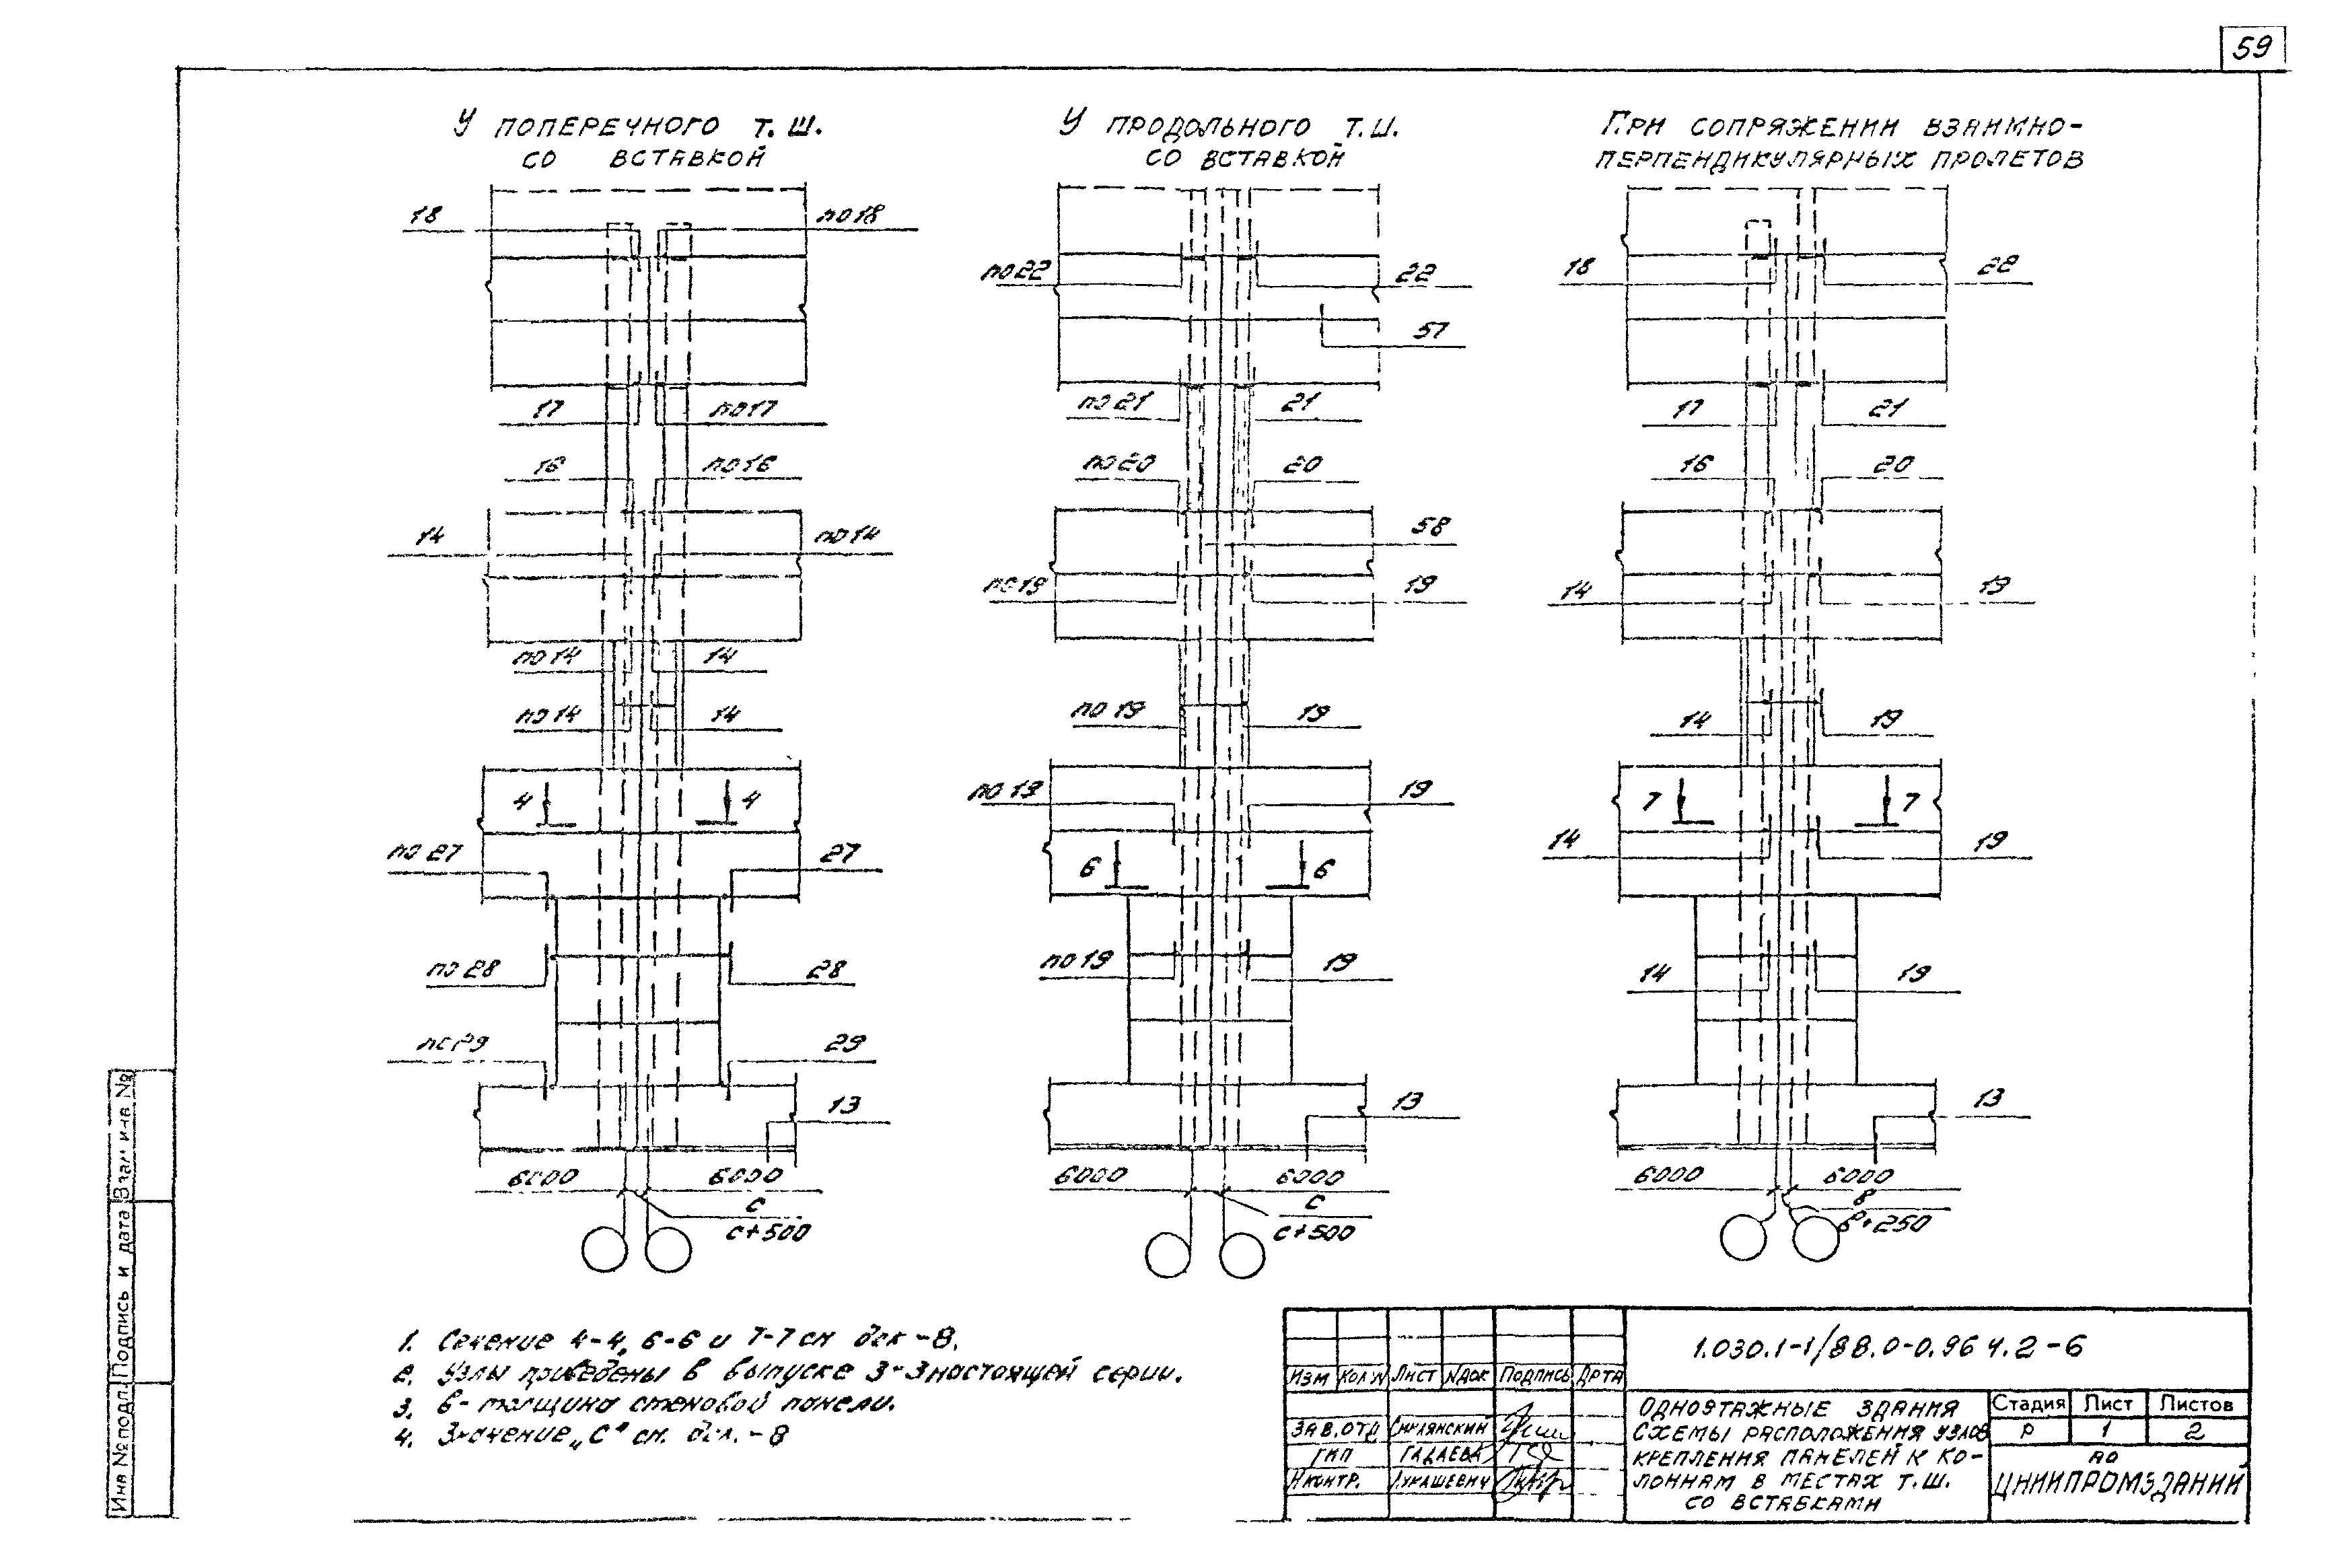 59
У ПОПЕРЕЧНОГО Т. Ш.
СО ВСТАВКОЙ
18
по 18
17
по 17
16
по 16
14
по 14
по 14
14
по 14
14
4
4
по 27
27
по 28
28
по 29
29
13
6000
6000
С
С+500
У ПРОДОЛЬНОГО Т. Ш.
СО ВСТАВКОЙ
по 22
22
57
по 21
21
по 20
20
58
по 19
19
по 19
19
по 19
19
6
6
по 19
19
13
6000
6000
С
С+500
ПРИ СОПРЯЖЕНИИ ВЗАИМНО-
ПЕРПЕНДИКУЛЯРНЫХ ПРОЛЕТОВ
18
22
17
21
16
20
14
19
14
19
7
7
14
19
14
19
13
6000
6000
в
в+250
1. Сечение 4-4, 6-6 и 7-7 см док -8.
2. Узлы приведены в выпуске 3-3 настоящей серии.
3. в- толщина стеновой панели.
4. Значение „С" см. док. -8
1.030.1-1/88.0-0.96 Ч.2-6
ИЗМ КОЛ.У ЛИСТ NДОК ПОДПИСЬ ДАТА
ЗАВ.ОТД СМИЛЯНСКИЙ
ГИП
Н КОНТР. ЛУКАШЕВИЧ
ОДНОЭТАЖНЫЕ ЗДАНИЯ
СХЕМЫ РАСПОЛОЖЕНИЯ УЗЛОВ
КРЕПЛЕНИЯ ПАНЕЛЕЙ К КО-
ЛОННАМ В МЕСТАХ Т.Ш.
СО ВСТАВКАМИ
Стадия Лист Листов
Р 1 2
АО
ЦНИИПРОМЗДАНИЙ
Инв № подл. Подпись и дата Взам инв №